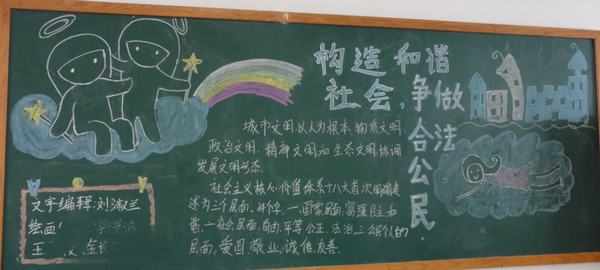 构造和谐
社会,争做
合法公民.
城市文明以人为根本 物质文明
政治文明 精神文明和生态文明协调
发展文明形态.
社会主义核心价值体系十八大首次
述为三个层面,
一社会层面,自由,平等 公正 法治 三
层面,爱国 敬业,诚信 友善.
文字编辑:刘淑兰
绘画
王